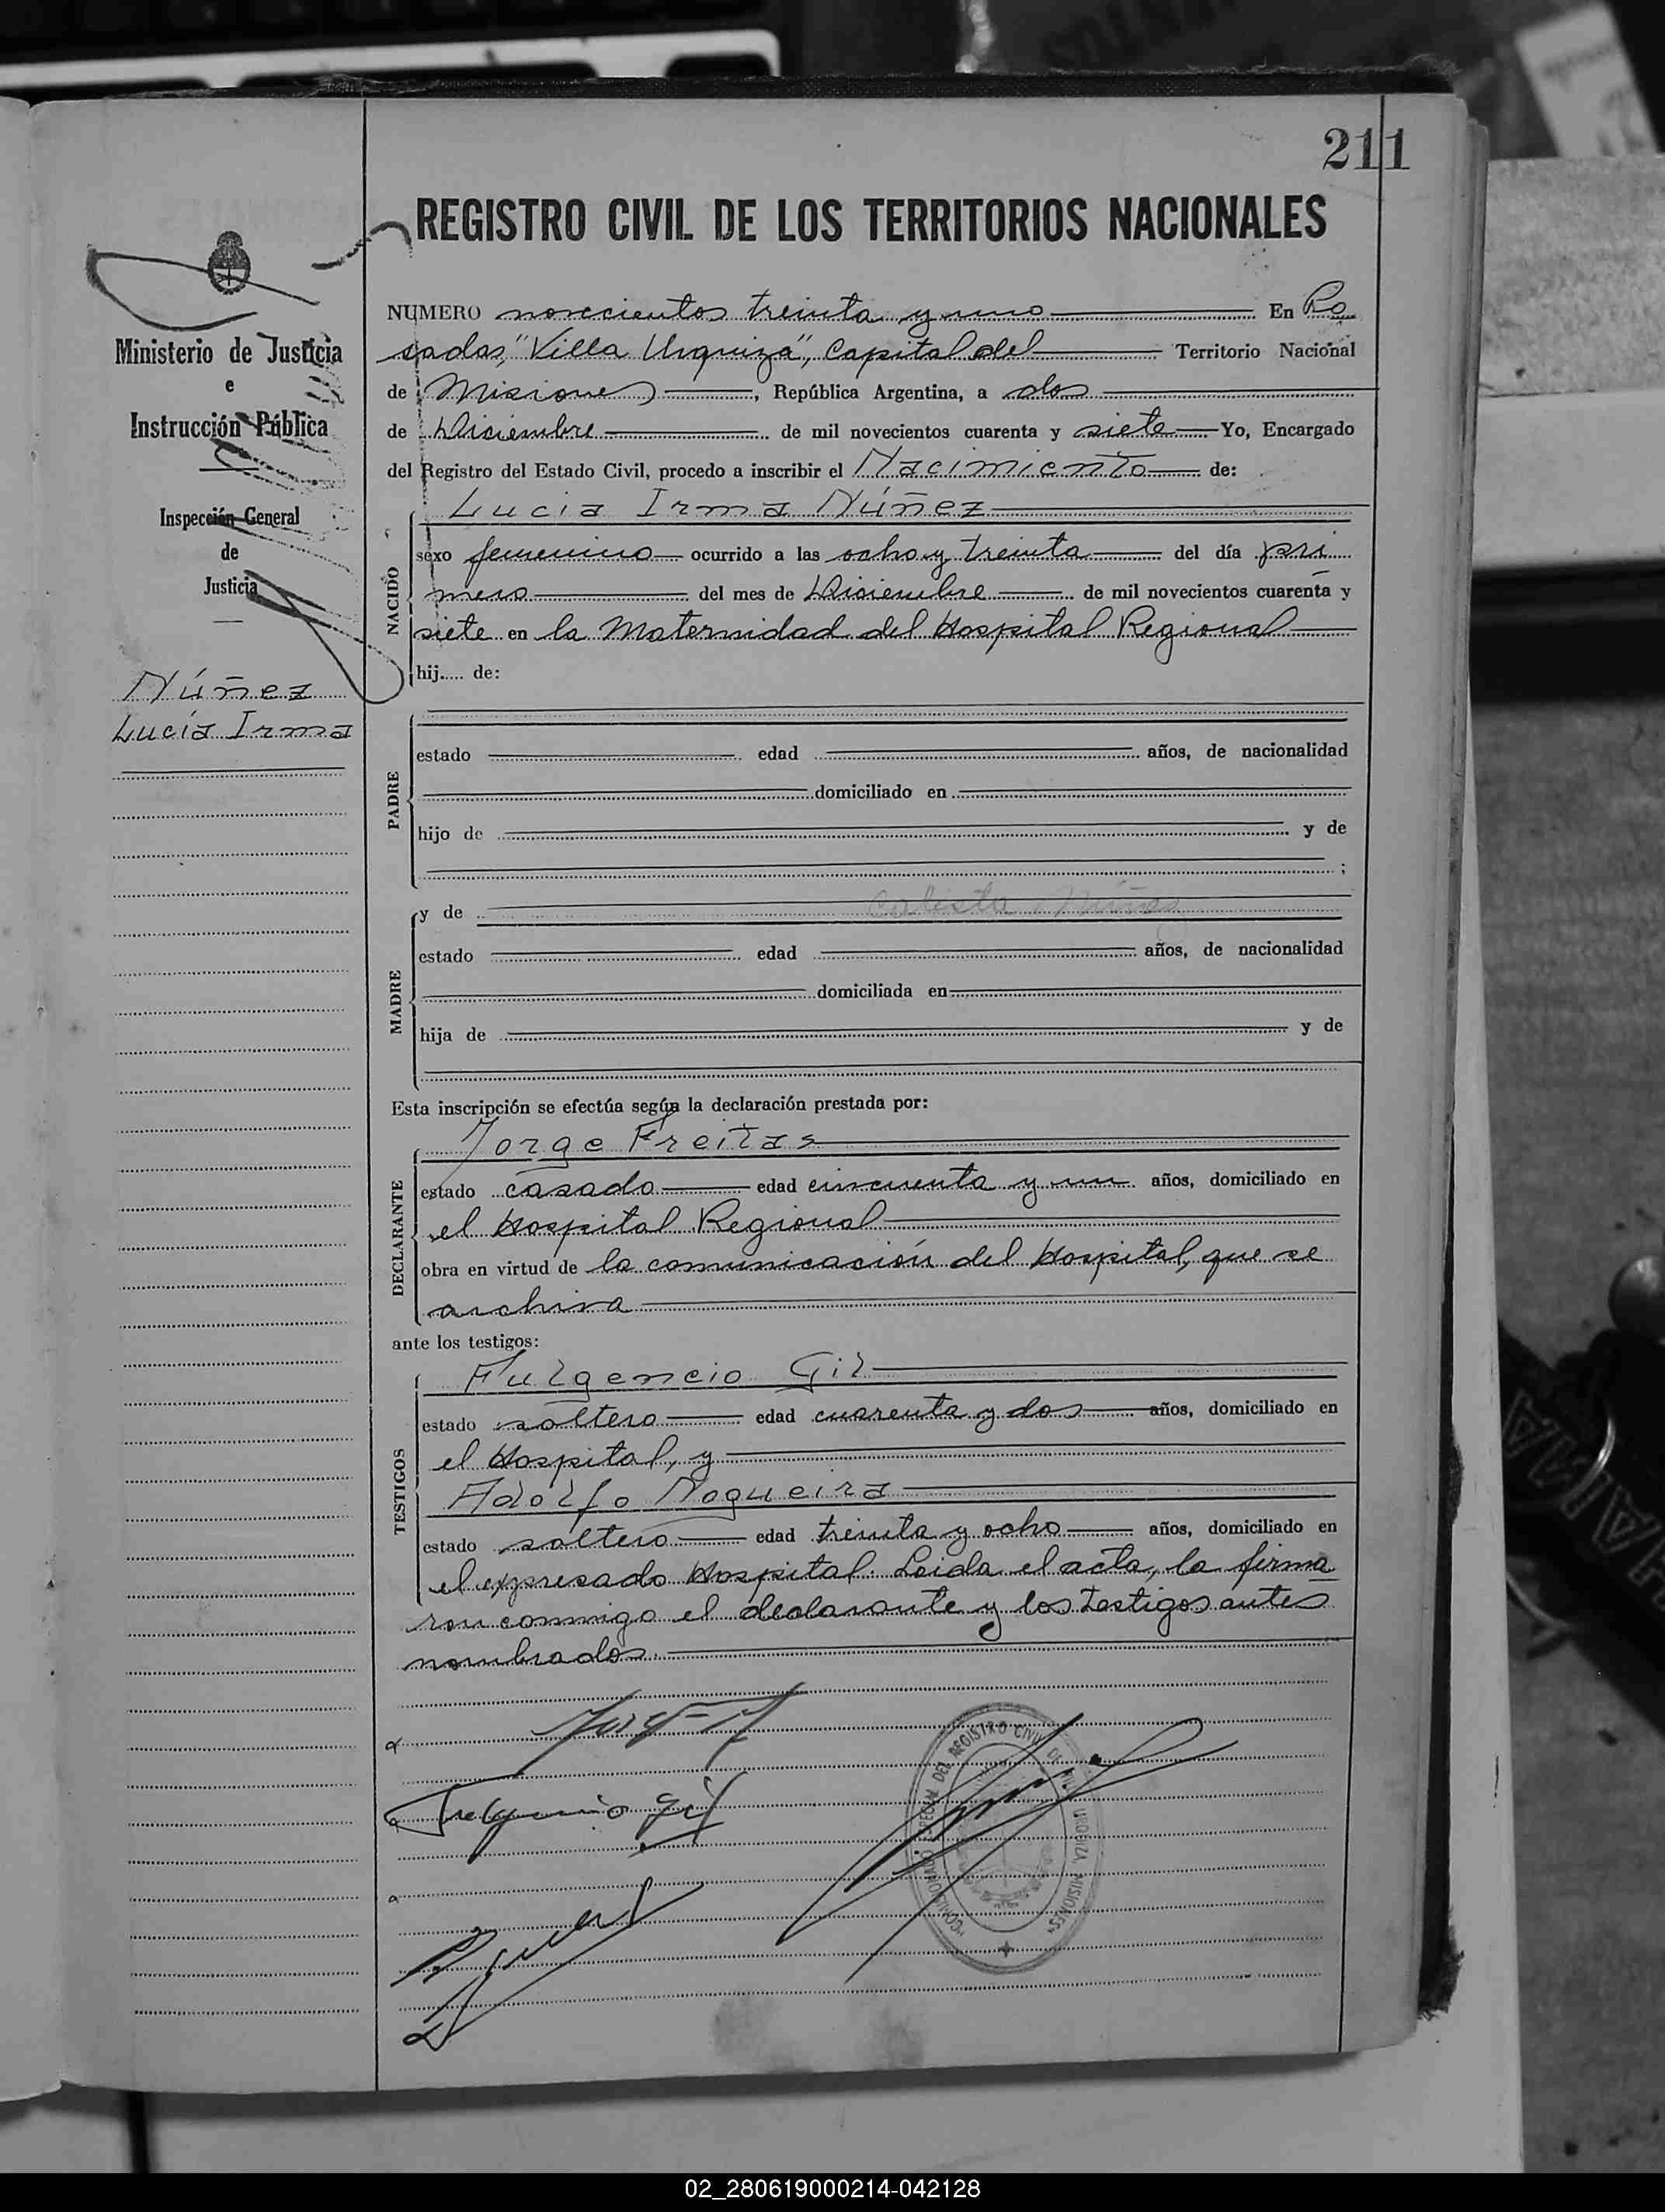 211
REGISTRO CIVIL DE LOS TERRITORIOS NACIONALES
Ministerio de Justicia
e
Instrucción Pública
Inspección General
de
Justicia
Núñez
Lucía Irma
NUMERO novecientos treinta y uno En Po
sadas, "Villa Urquiza", Capital del Territorio Nacional
de Misiones, República Argentina, a dos
de Diciembre de mil novecientos cuarenta y siete Yo, Encargado
del Registro del Estado Civil, procedo a inscribir el Nacimiento de:
Lucía Irma Núñez
NACIDO
sexo femenino ocurrido a las ocho y treinta del día pri
mero del mes de Diciembre de mil novecientos cuarenta y
siete en la Maternidad del Hospital Regional
hij.... de:
PADRE
estado edad años, de nacionalidad
domiciliado en
hijo de y de
;
MADRE
y de Calista Núñez
estado edad años, de nacionalidad
domiciliada en
hija de y de
Esta inscripción se efectúa según la declaración prestada por:
Jorge Freitas
DECLARANTE
estado casado edad cincuenta y un años, domiciliado en
el Hospital Regional
obra en virtud de la comunicación del Hospital, que se
archiva
ante los testigos:
Fulgencio Gil
TESTIGOS
estado soltero edad cuarenta y dos años, domiciliado en
el Hospital, y
Adolfo Nogueira
estado soltero edad treinta y ocho años, domiciliado en
el expresado Hospital. Leida el acta, la firma
ron conmigo el declarante y los testigos antes
nombrados.
Fulgencio Gil
COMISIONADO ESPECIAL DEL REGISTRO CIVIL DE VILLA URQUIZA MISIONES
02_280619000214-042128